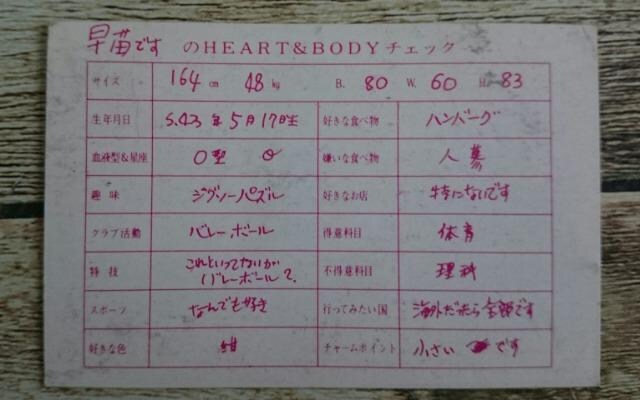 早苗です のHEART&BODYチェック
サイズ 164 cm 48 kg B. 80 W. 60 H. 83
生年月日 S.43年5月17日生 好きな食べ物 ハンバーグ
血液型&星座 O型 嫌いな食べ物 人参
趣味 ジグソーパズル 好きなお店 特にないです
クラブ活動 バレーボール 得意科目 体育
特技 これといってないが 不得意科目 理科
バレーボール?
スポーツ なんでも好き 行ってみたい国 海外だったら全部です
好きな色 紺 チャームポイント 小さい です